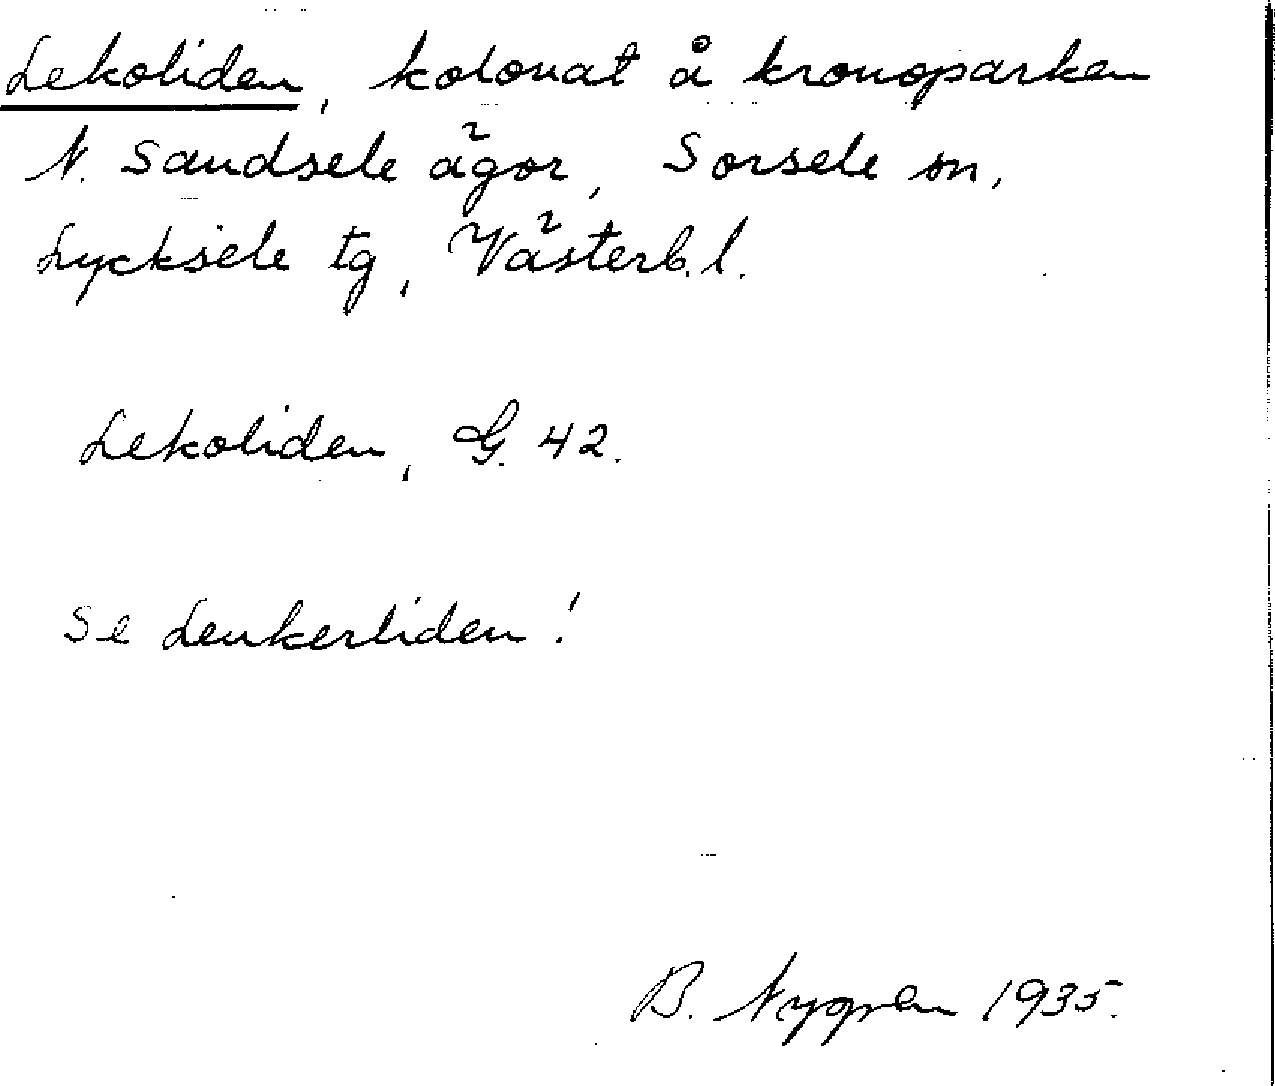 Lekoliden, kolonat å kronoparken
N. Sandsele ägor, Sorsele sn,
Lycksele tg, Västerb. l.
Lekoliden, G. 42.
Se Lenkerliden!
B. Nygren 1935.